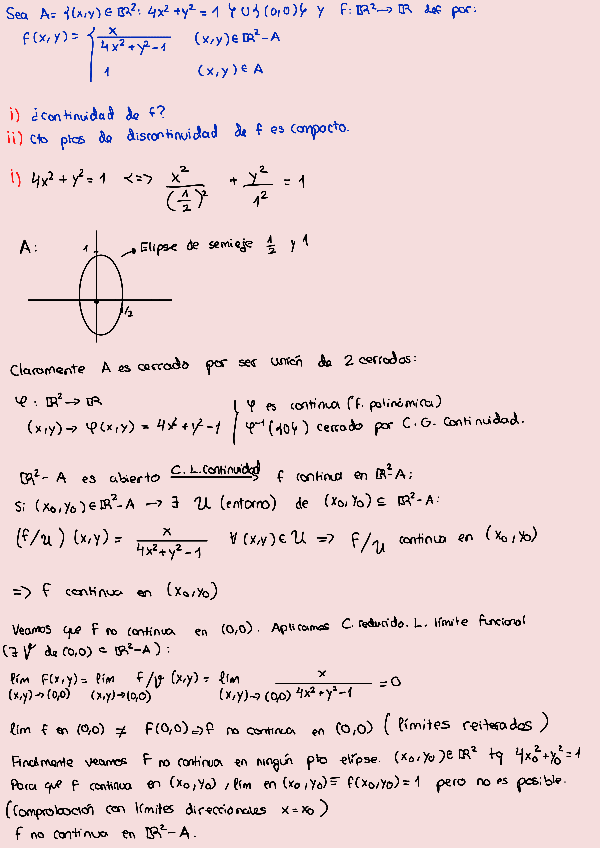 Sea A = {(x,y) ∈ ℝ²: 4x²+y² = 1} ∪ {(0,0)} y f: ℝ² → ℝ def por:
f(x,y) = { x / (4x²+y²-1)   (x,y) ∈ ℝ²-A
1   (x,y) ∈ A
i) ¿continuidad de f?
ii) Cto ptos de discontinuidad de f es compacto.
i) 4x²+y² = 1 <=> x²/(1/2)² + y²/1² = 1
A: 1 Elipse de semieje 1/2 y 1
1/2
Claramente A es cerrado por ser unión de 2 cerrados:
φ: ℝ² → ℝ { φ es continua (f. polinómica)
(x,y) → φ(x,y) = 4x²+y²-1 { φ⁻¹({0}) cerrado por C.G. Continuidad.
ℝ²-A es abierto C.L.Continuidad → f continua en ℝ²-A;
Si (x₀,y₀) ∈ ℝ²-A → ∃ U (entorno) de (x₀,y₀) ⊆ ℝ²-A:
(f/U)(x,y) = x / (4x²+y²-1) ∀(x,y) ∈ U => f/U continua en (x₀,y₀)
=> f continua en (x₀,y₀)
Veamos que f no continua en (0,0). Aplicamos C. reducido. L. límite funcional
(∃ V de (0,0) ⊂ ℝ²-A):
lím f(x,y) = lím f/V (x,y) = lím x / (4x²+y²-1) = 0
(x,y)→(0,0) (x,y)→(0,0) (x,y)→(0,0)
lím f en (0,0) ≠ f(0,0) => f no continua en (0,0) (límites reiterados)
Finalmente veamos f no continua en ningún pto elipse. (x₀,y₀) ∈ ℝ² tq 4x₀²+y₀²=1
Para que f continua en (x₀,y₀), lím en (x₀,y₀) = f(x₀,y₀) = 1 pero no es posible.
(Comprobación con límites direccionales x = x₀)
f no continua en ℝ²-A.